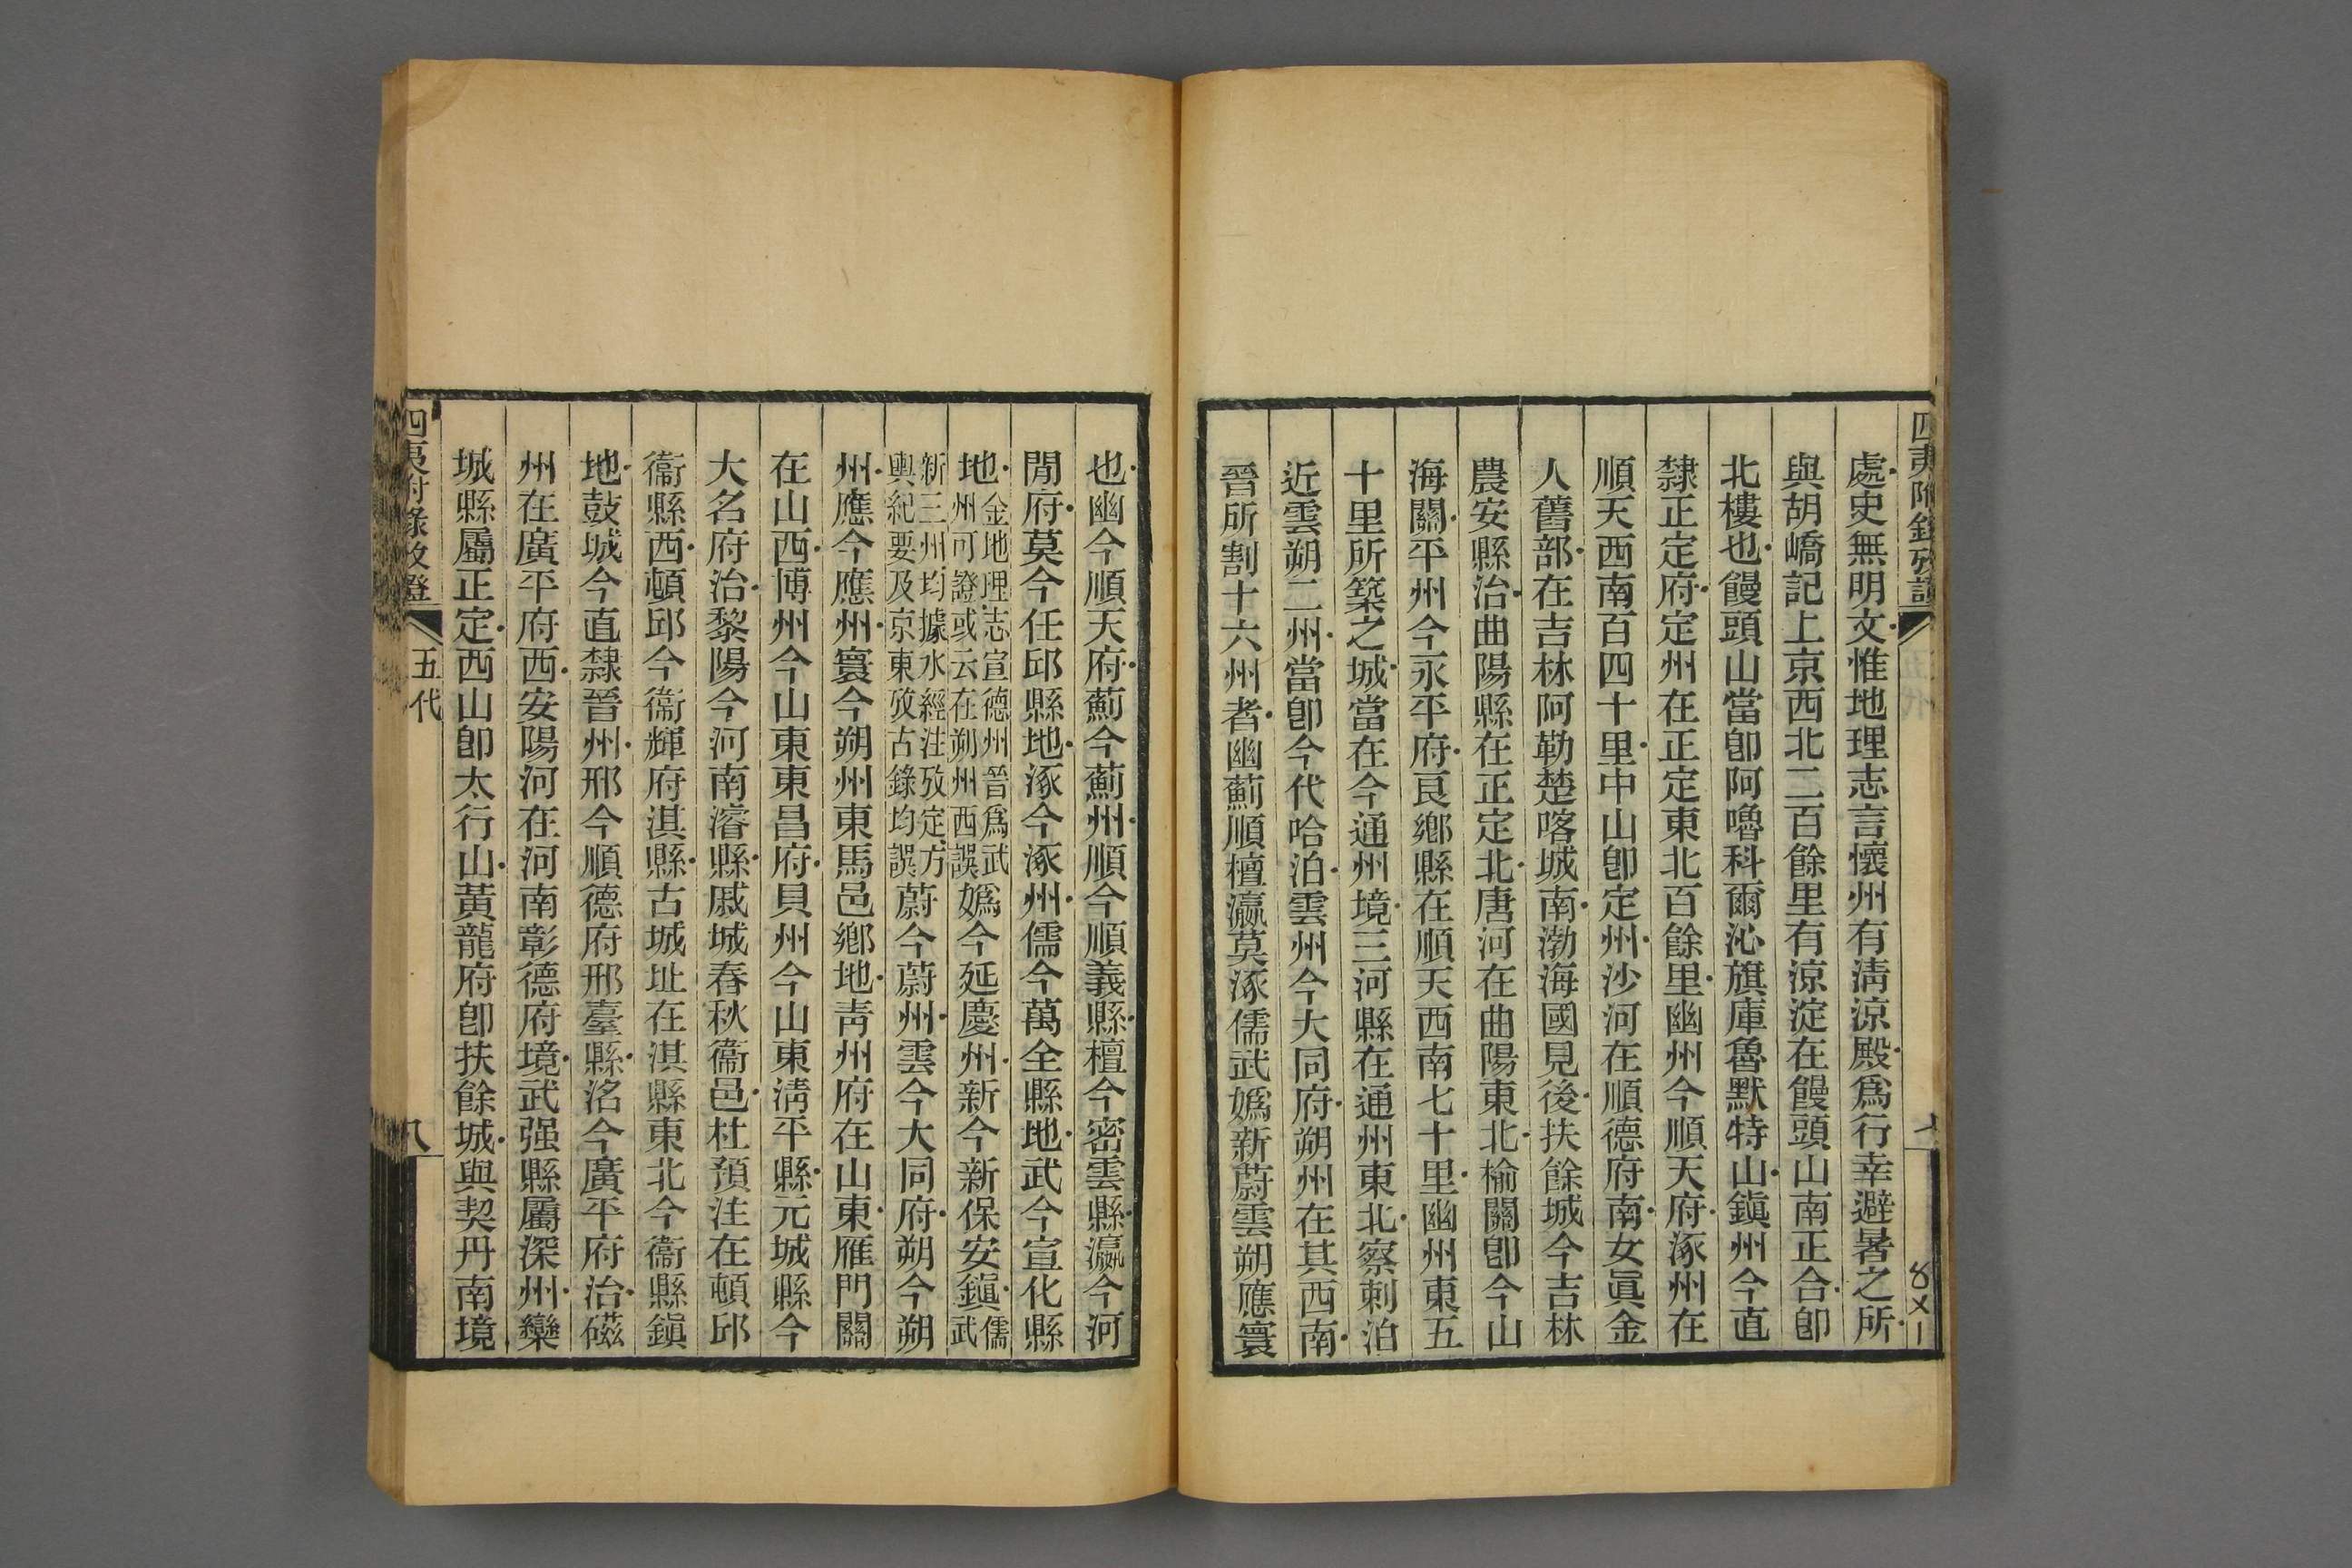 四夷附錄攷證
七
處史無明文惟地理志言懷州有淸涼殿爲行幸避暑之所
與胡嶠記上京西北二百餘里有涼淀在饅頭山南正合卽
北樓也饅頭山當卽阿嚕科爾沁旗庫魯默特山鎭州今直
隸正定府定州在正定東北百餘里幽州今順天府涿州在
順天西南百四十里中山卽定州沙河在順德府南女眞金
人舊部在吉林阿勒楚喀城南渤海國見後扶餘城今吉林
農安縣治曲陽縣在正定北唐河在曲陽東北榆關卽今山
海關平州今永平府良鄉縣在順天西南七十里幽州東五
十里所築之城當在今通州境三河縣在通州東北察剌泊
近雲朔二州當卽今代哈泊雲州今大同府朔州在其西南
晉所割十六州者幽薊順檀瀛莫涿儒武嬀新蔚雲朔應寰
也幽今順天府薊今薊州順今順義縣檀今密雲縣瀛今河
閒府莫今任邱縣地涿今涿州儒今萬全縣地武今宣化縣
地金地理志宣德州晉爲武州可證或云在朔州西誤嬀今延慶州新今新保安鎭儒武
新三州均據水經注攷定方輿紀要及京東攷古錄均誤蔚今蔚州雲今大同府朔今朔
州應今應州寰今朔州東馬邑鄉地靑州府在山東雁門關
在山西博州今山東東昌府貝州今山東淸平縣元城縣今
大名府治黎陽今河南濬縣戚城春秋衞邑杜預注在頓邱
衞縣西頓邱今衞輝府淇縣古城址在淇縣東北今衞縣鎭
地鼓城今直隸晉州邢今順德府邢臺縣洺今廣平府治磁
州在廣平府西安陽河在河南彰德府境武强縣屬深州欒
城縣屬正定西山卽太行山黃龍府卽扶餘城與契丹南境
四夷附錄攷證
五代
八